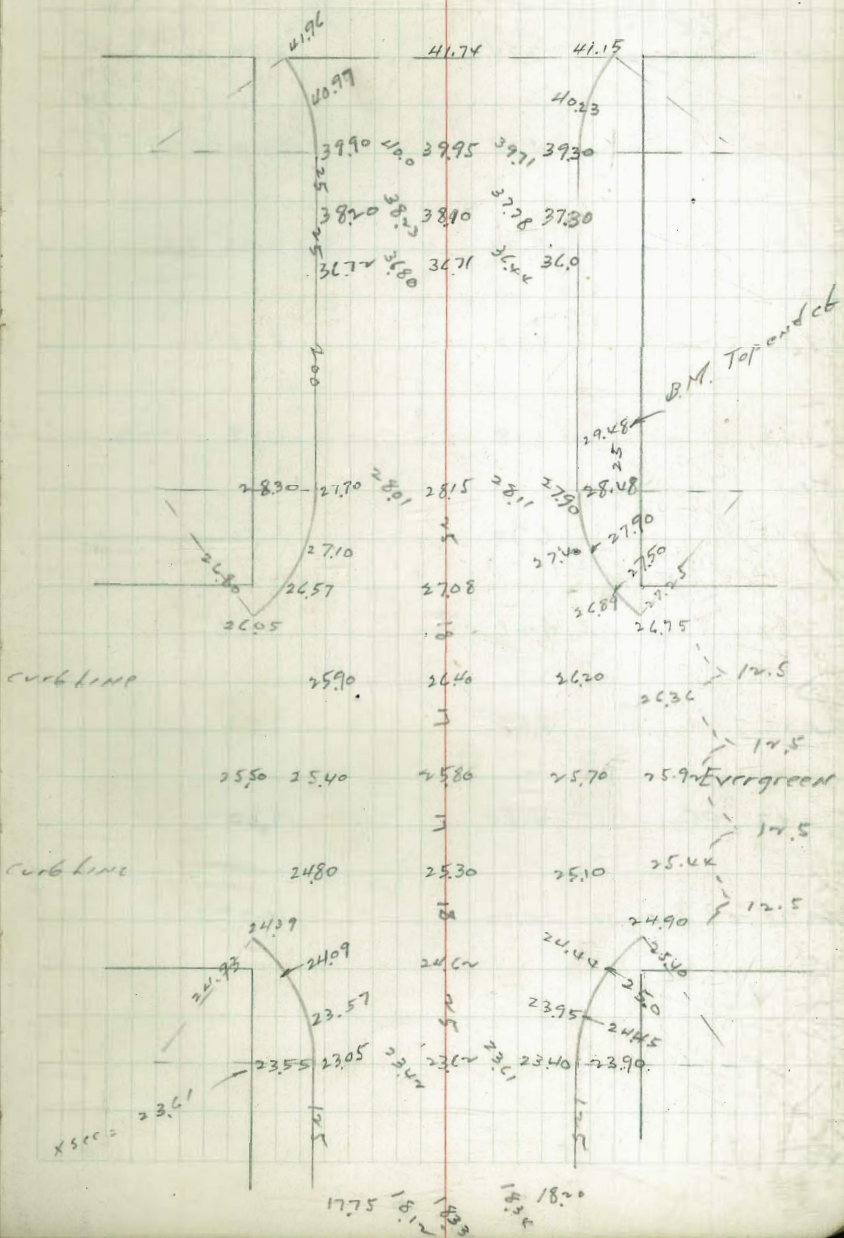 41.96 41.74 41.15
40.97 40.23
39.90 40.0 39.95 39.71 39.30
25
38.20 38.27 38.90 37.78 37.30
25
36.72 36.80 36.71 36.44 36.0
200
B.M. Top end cb
29.48
25
28.30 27.70 28.01 28.15 28.11 27.90 28.48
25
27.10 27.40 27.90
26.80 26.57 27.08 26.89 27.50 27.25
26.05 26.75
18
curb Line 25.90 26.40 26.20 12.5
26.36
12.5
25.50 25.40 25.80 25.70 25.92 Evergreen
12.5
curb Line 24.80 25.30 25.10 25.44
18 12.5
24.39 24.90
24.93 24.09 24.62 24.44 25.40
25.0
23.57 25 23.95 24.45
23.55 23.05 23.42 23.62 23.61 23.40 23.90
x sec = 23.61
125 125
17.75 18.12 18.33 18.34 18.20